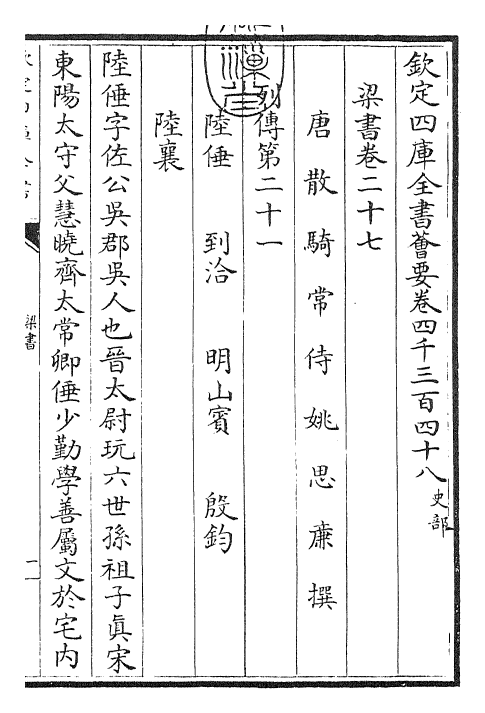 欽定四庫全書薈要卷四千三百四十八史部
梁書卷二十七
唐散騎常侍姚思廉撰
列傳第二十一
陸倕 到洽 明山賓 殷鈞
陸襄
陸倕字佐公吳郡吳人也晉太尉玩六世孫祖子真宋
東陽太守父慧曉齊太常卿倕少勤學善屬文於宅内
梁書